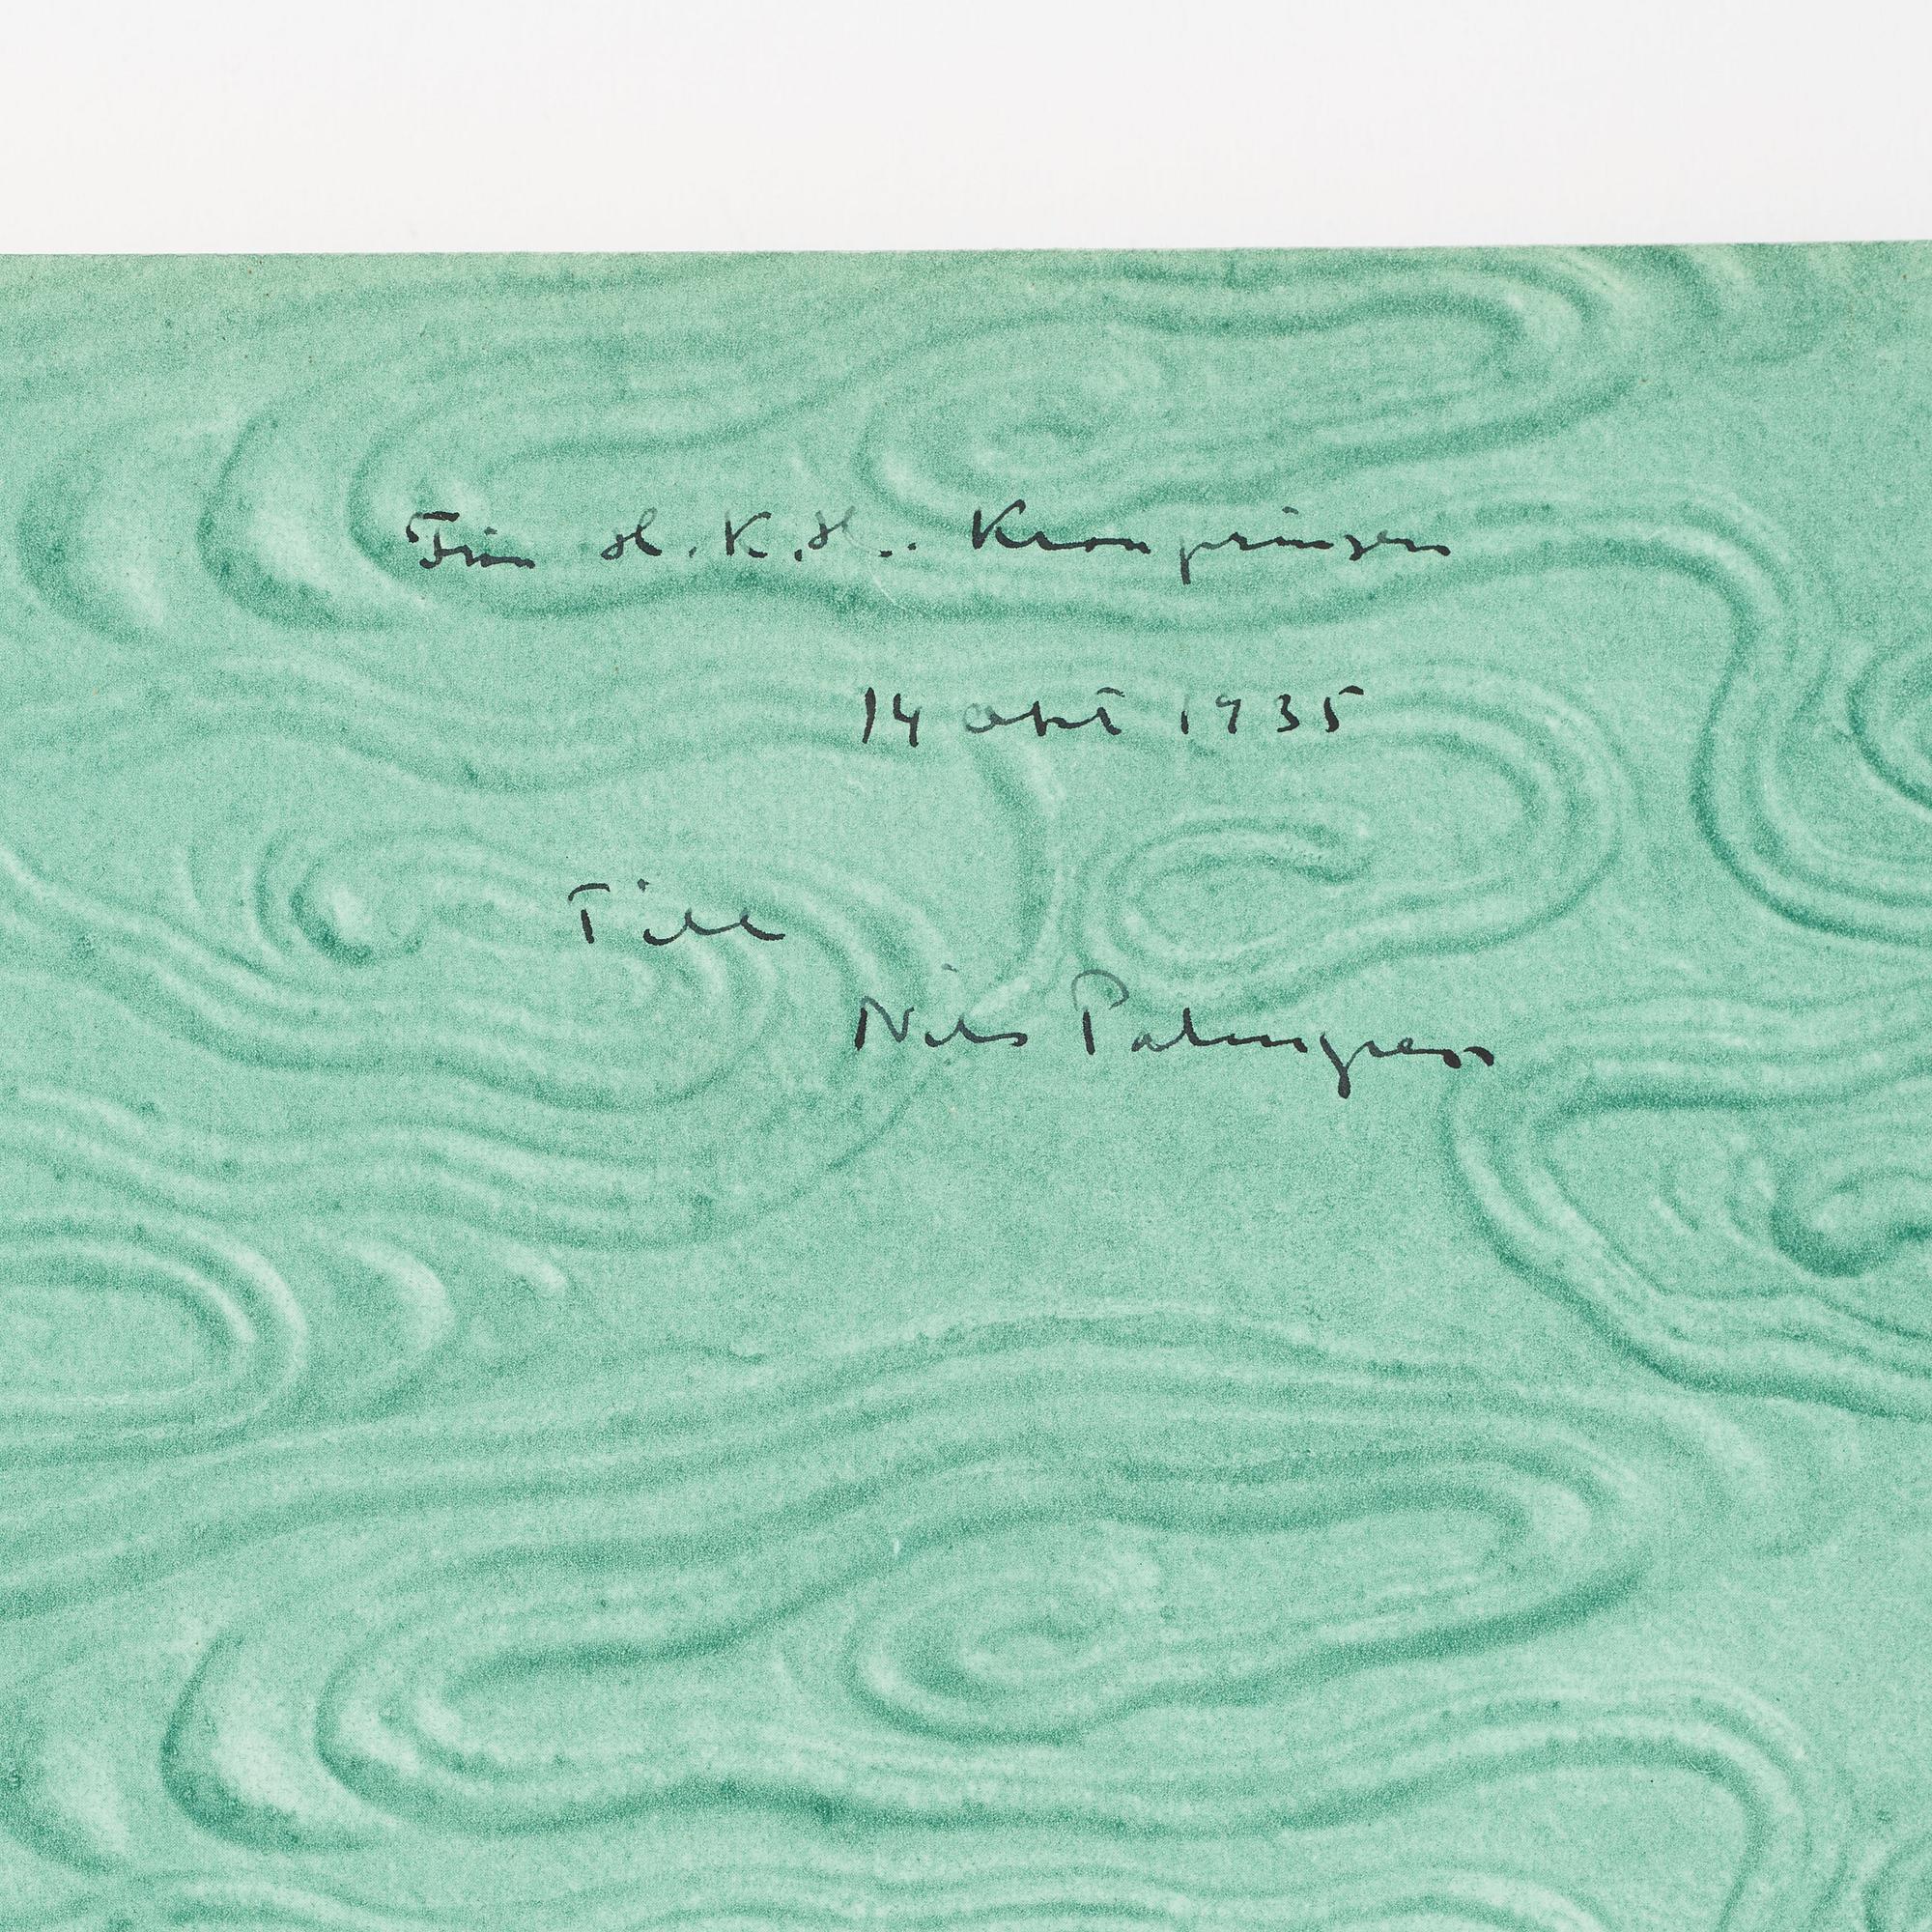 Från H.K.H.. Kronprinsen
14 okt 1935
Till
Nils Palmgren